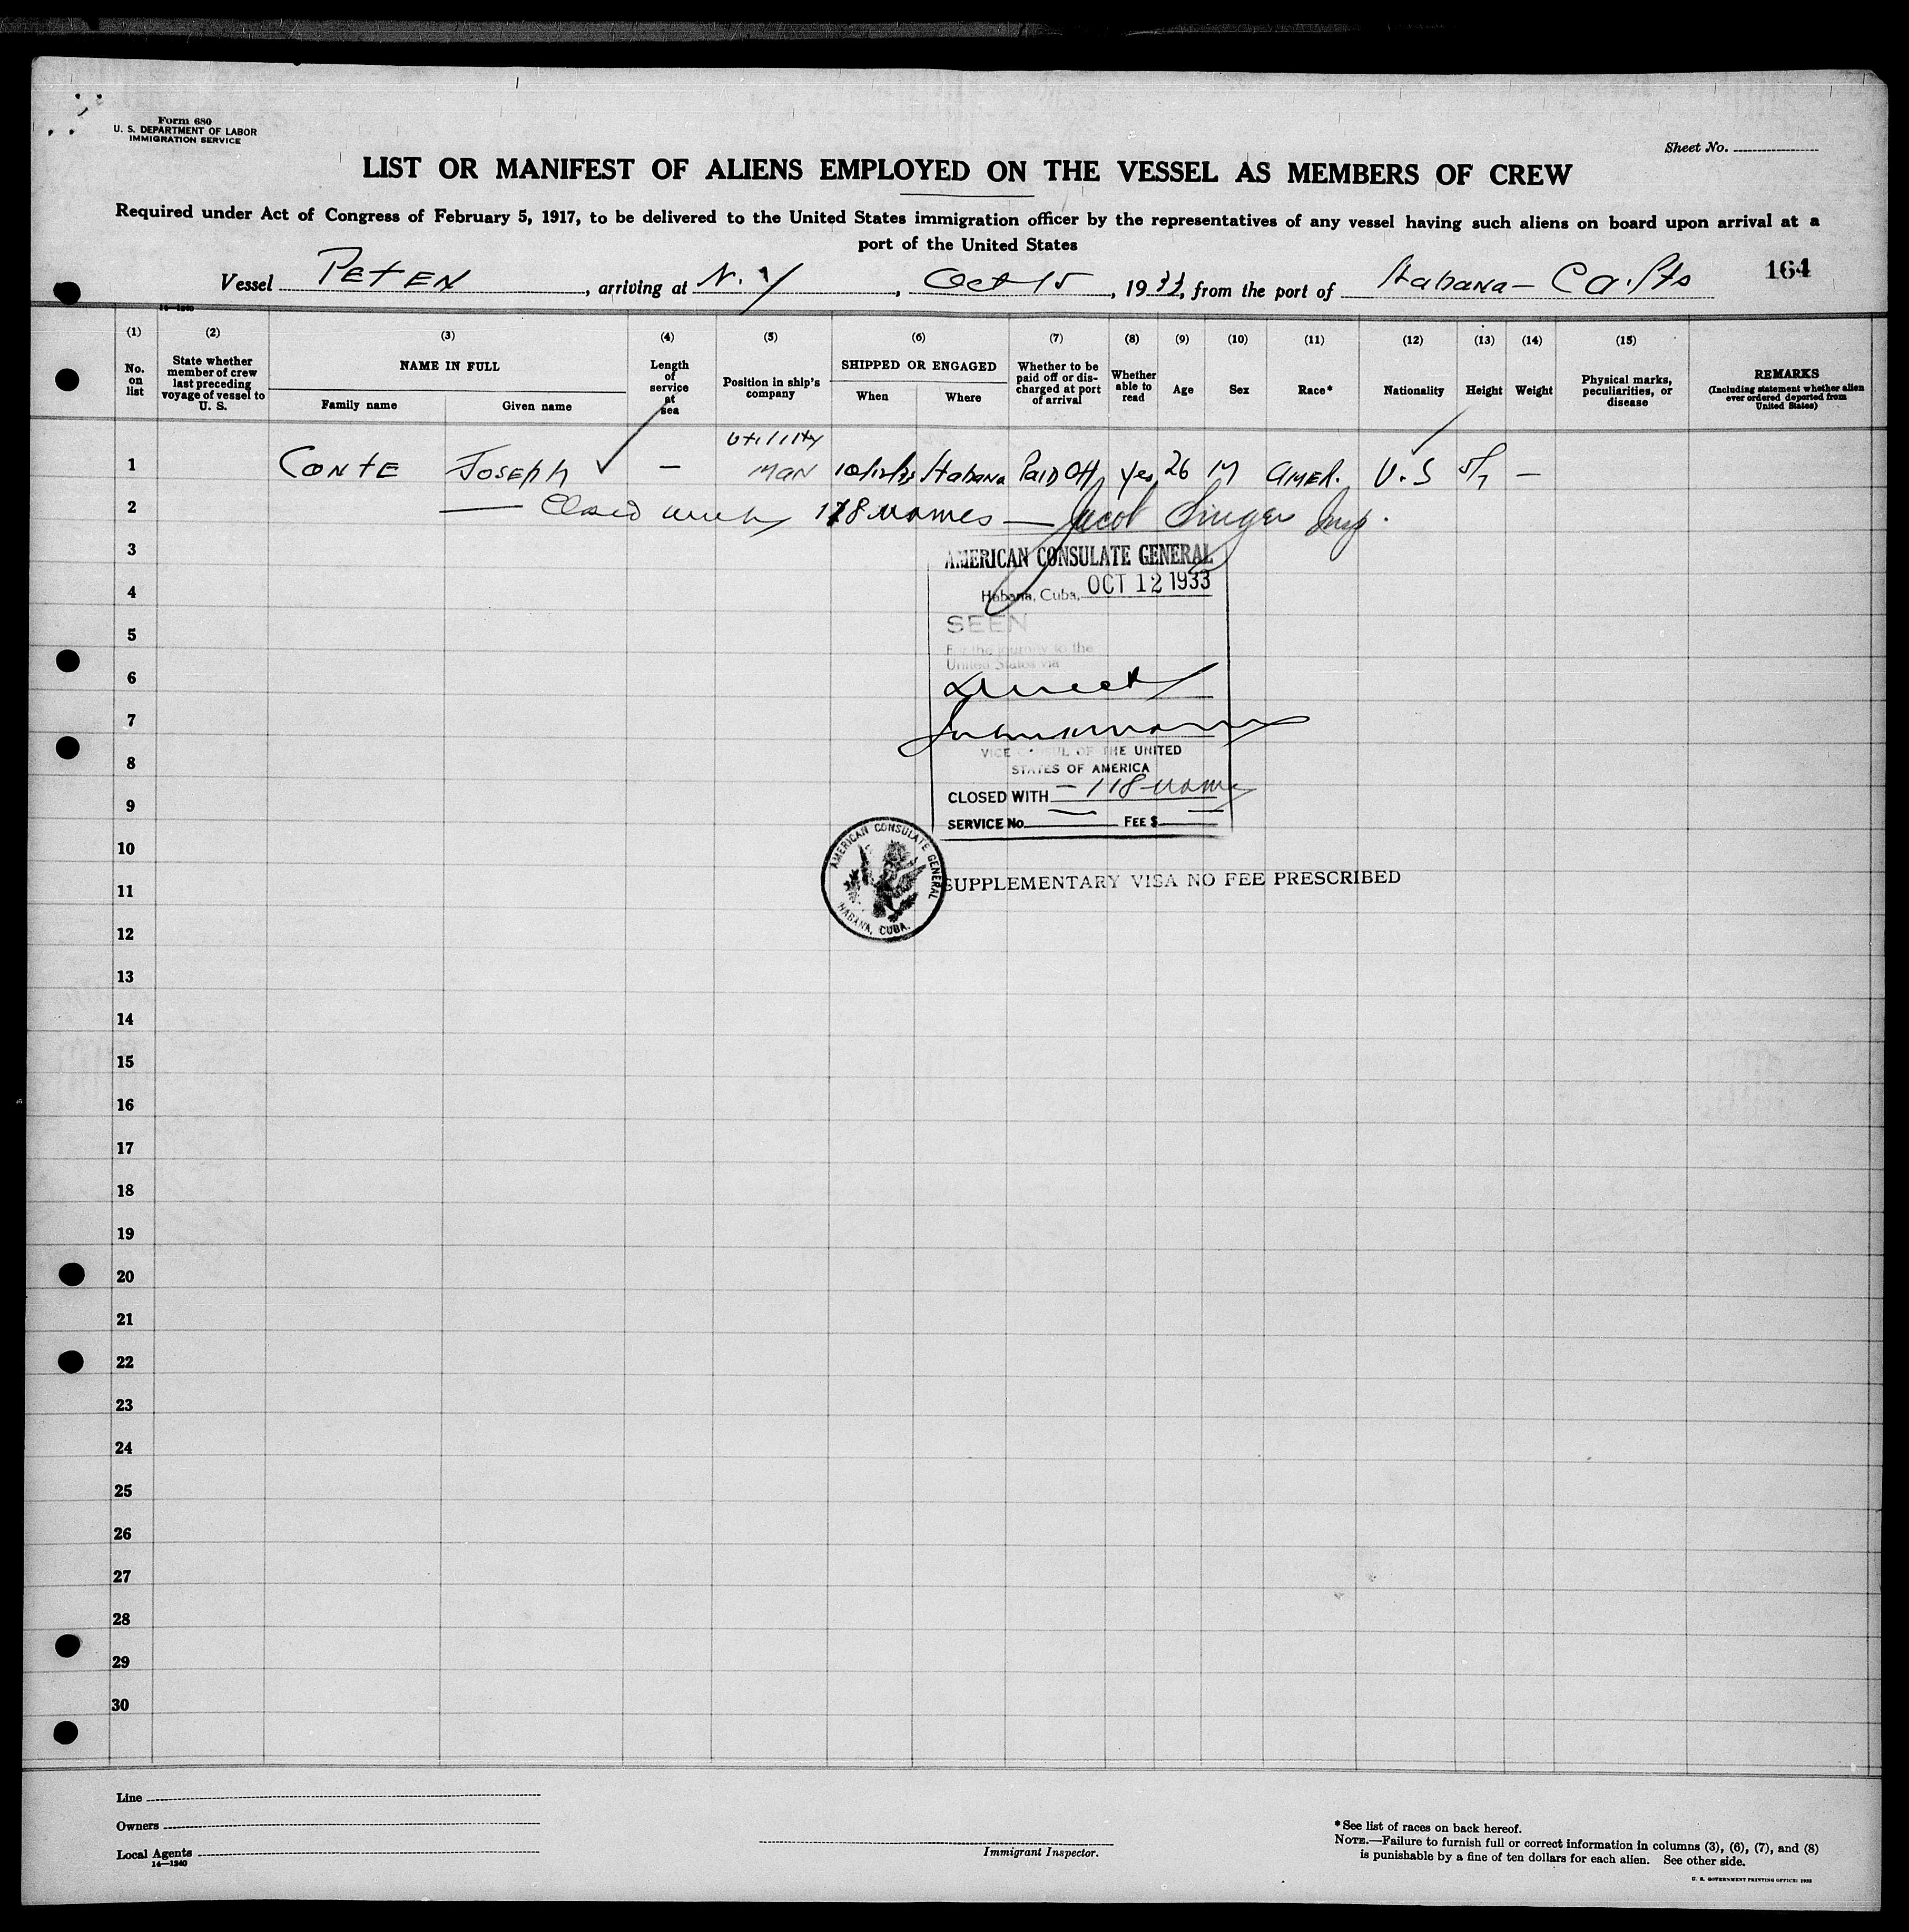 Form 680
U. S. DEPARTMENT OF LABOR
IMMIGRATION SERVICE
Sheet No.
LIST OR MANIFEST OF ALIENS EMPLOYED ON THE VESSEL AS MEMBERS OF CREW
Required under Act of Congress of February 5, 1917, to be delivered to the United States immigration officer by the representatives of any vessel having such aliens on board upon arrival at a
port of the United States
Vessel PETEN, arriving at N.Y, Oct 15, 1933, from the port of Habana —
164
(1) (2) (3) (4) (5) (6) (7) (8) (9) (10) (11) (12) (13) (14) (15)
No. on list
State whether member of crew last preceding voyage of vessel to U. S.
NAME IN FULL
Family name
Given name
Length of service at sea
Position in ship's company
SHIPPED OR ENGAGED
When
Where
Whether to be paid off or discharged at port of arrival
Whether able to read
Age
Sex
Race*
Nationality
Height
Weight
Physical marks, peculiarities, or disease
REMARKS
(Including statement whether alien ever ordered deported from United States)
1 CONTE JOSEPH — Utility MAN 10/12/33 Habana PAID Off Yes 26 M AMER. U.S 5/7 —
2 — Closed with 118 names — Jacob Singer Insp.
3
AMERICAN CONSULATE GENERAL
4
Habana, Cuba, OCT 12 1933
5
SEEN
For the journey to the
United States via
6
Direct
7
VICE CONSUL OF THE UNITED
8
STATES OF AMERICA
CLOSED WITH — 118 names
9
SERVICE No. — FEE $ —
10
AMERICAN CONSULATE GENERAL
HABANA, CUBA.
11
SUPPLEMENTARY VISA NO FEE PRESCRIBED
12
13
14
15
16
17
18
19
20
21
22
23
24
25
26
27
28
29
30
Line
Owners
Local Agents
14—1240
Immigrant Inspector.
*See list of races on back hereof.
NOTE.—Failure to furnish full or correct information in columns (3), (6), (7), and (8)
is punishable by a fine of ten dollars for each alien. See other side.
U. S. GOVERNMENT PRINTING OFFICE: 1932